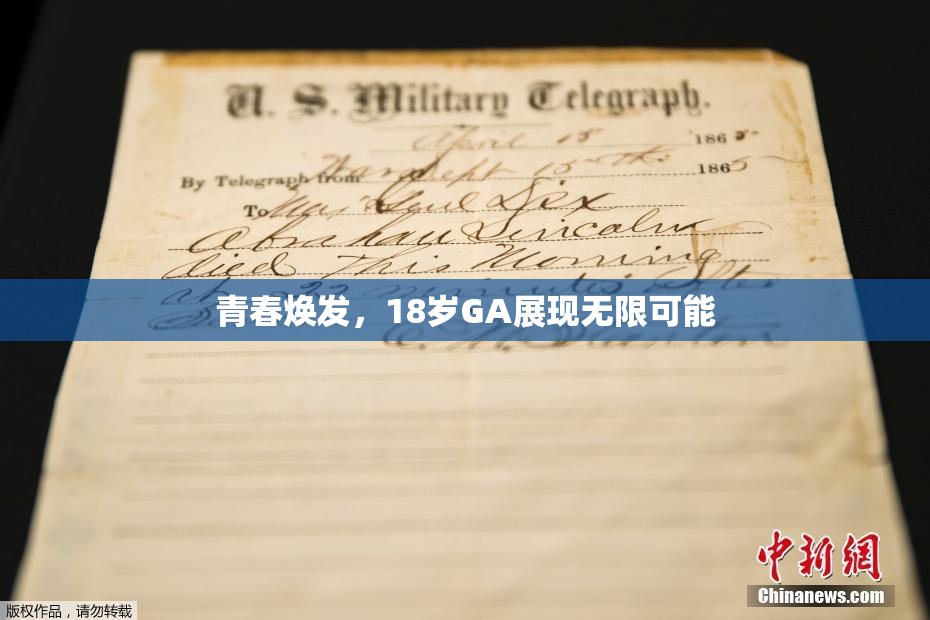 U. S. Military Telegraph.
April 15 1865
By Telegraph from War Dept 15th 1865
To Maj Genl Dix
Abraham Lincoln
died This Morning
at 22 minutes after
青春焕发，18岁GA展现无限可能
中新網
Chinanews.com
版权作品，请勿转载